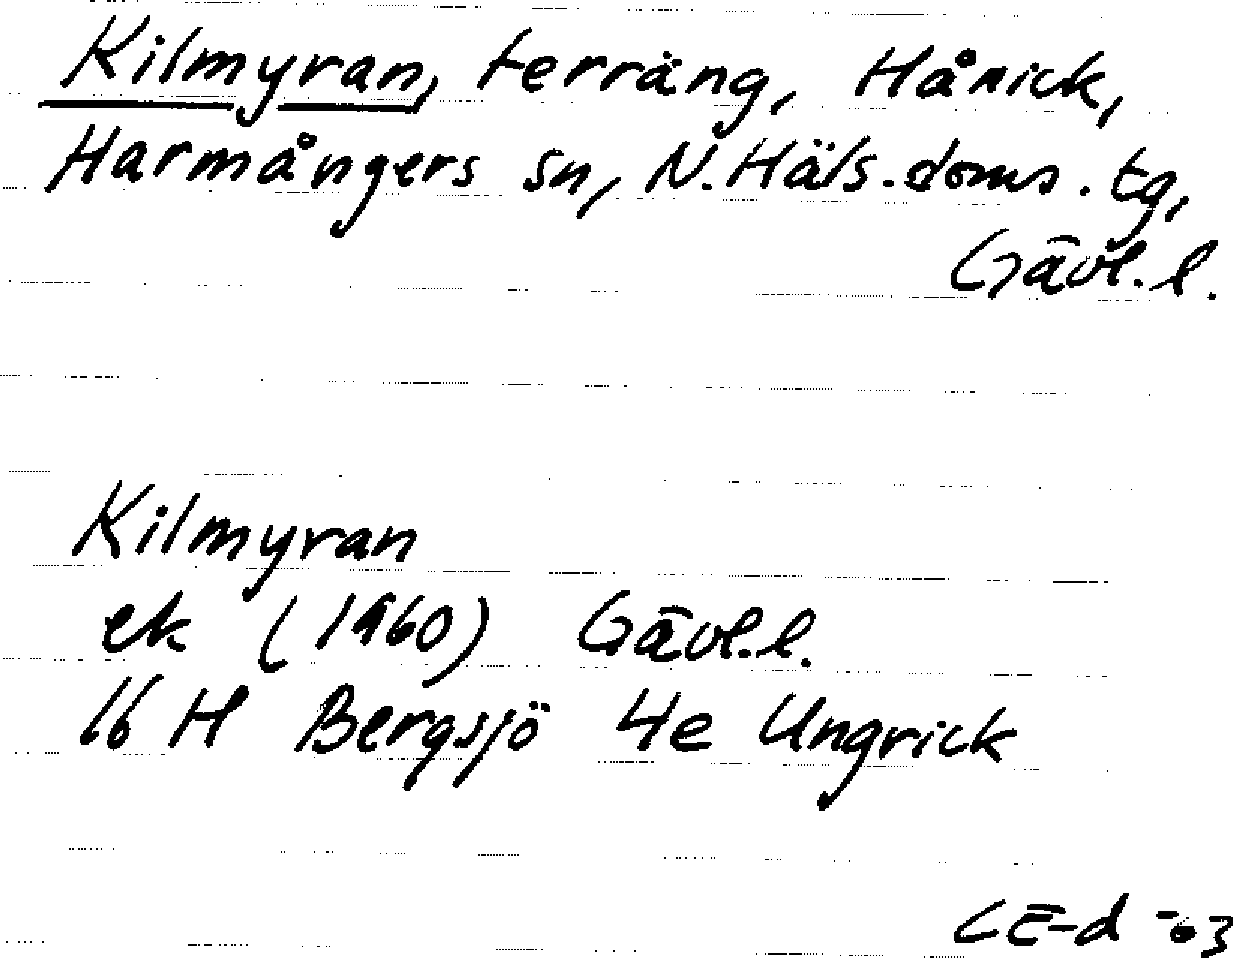 Kilmyran, terräng, Hånick,
Harmångers sn, N. Häls. doms. tg,
Gävl. l.
Kilmyran
ek (1960) Gävl. l.
16 H Bergsjö 4e Ungrick
CE-d -03